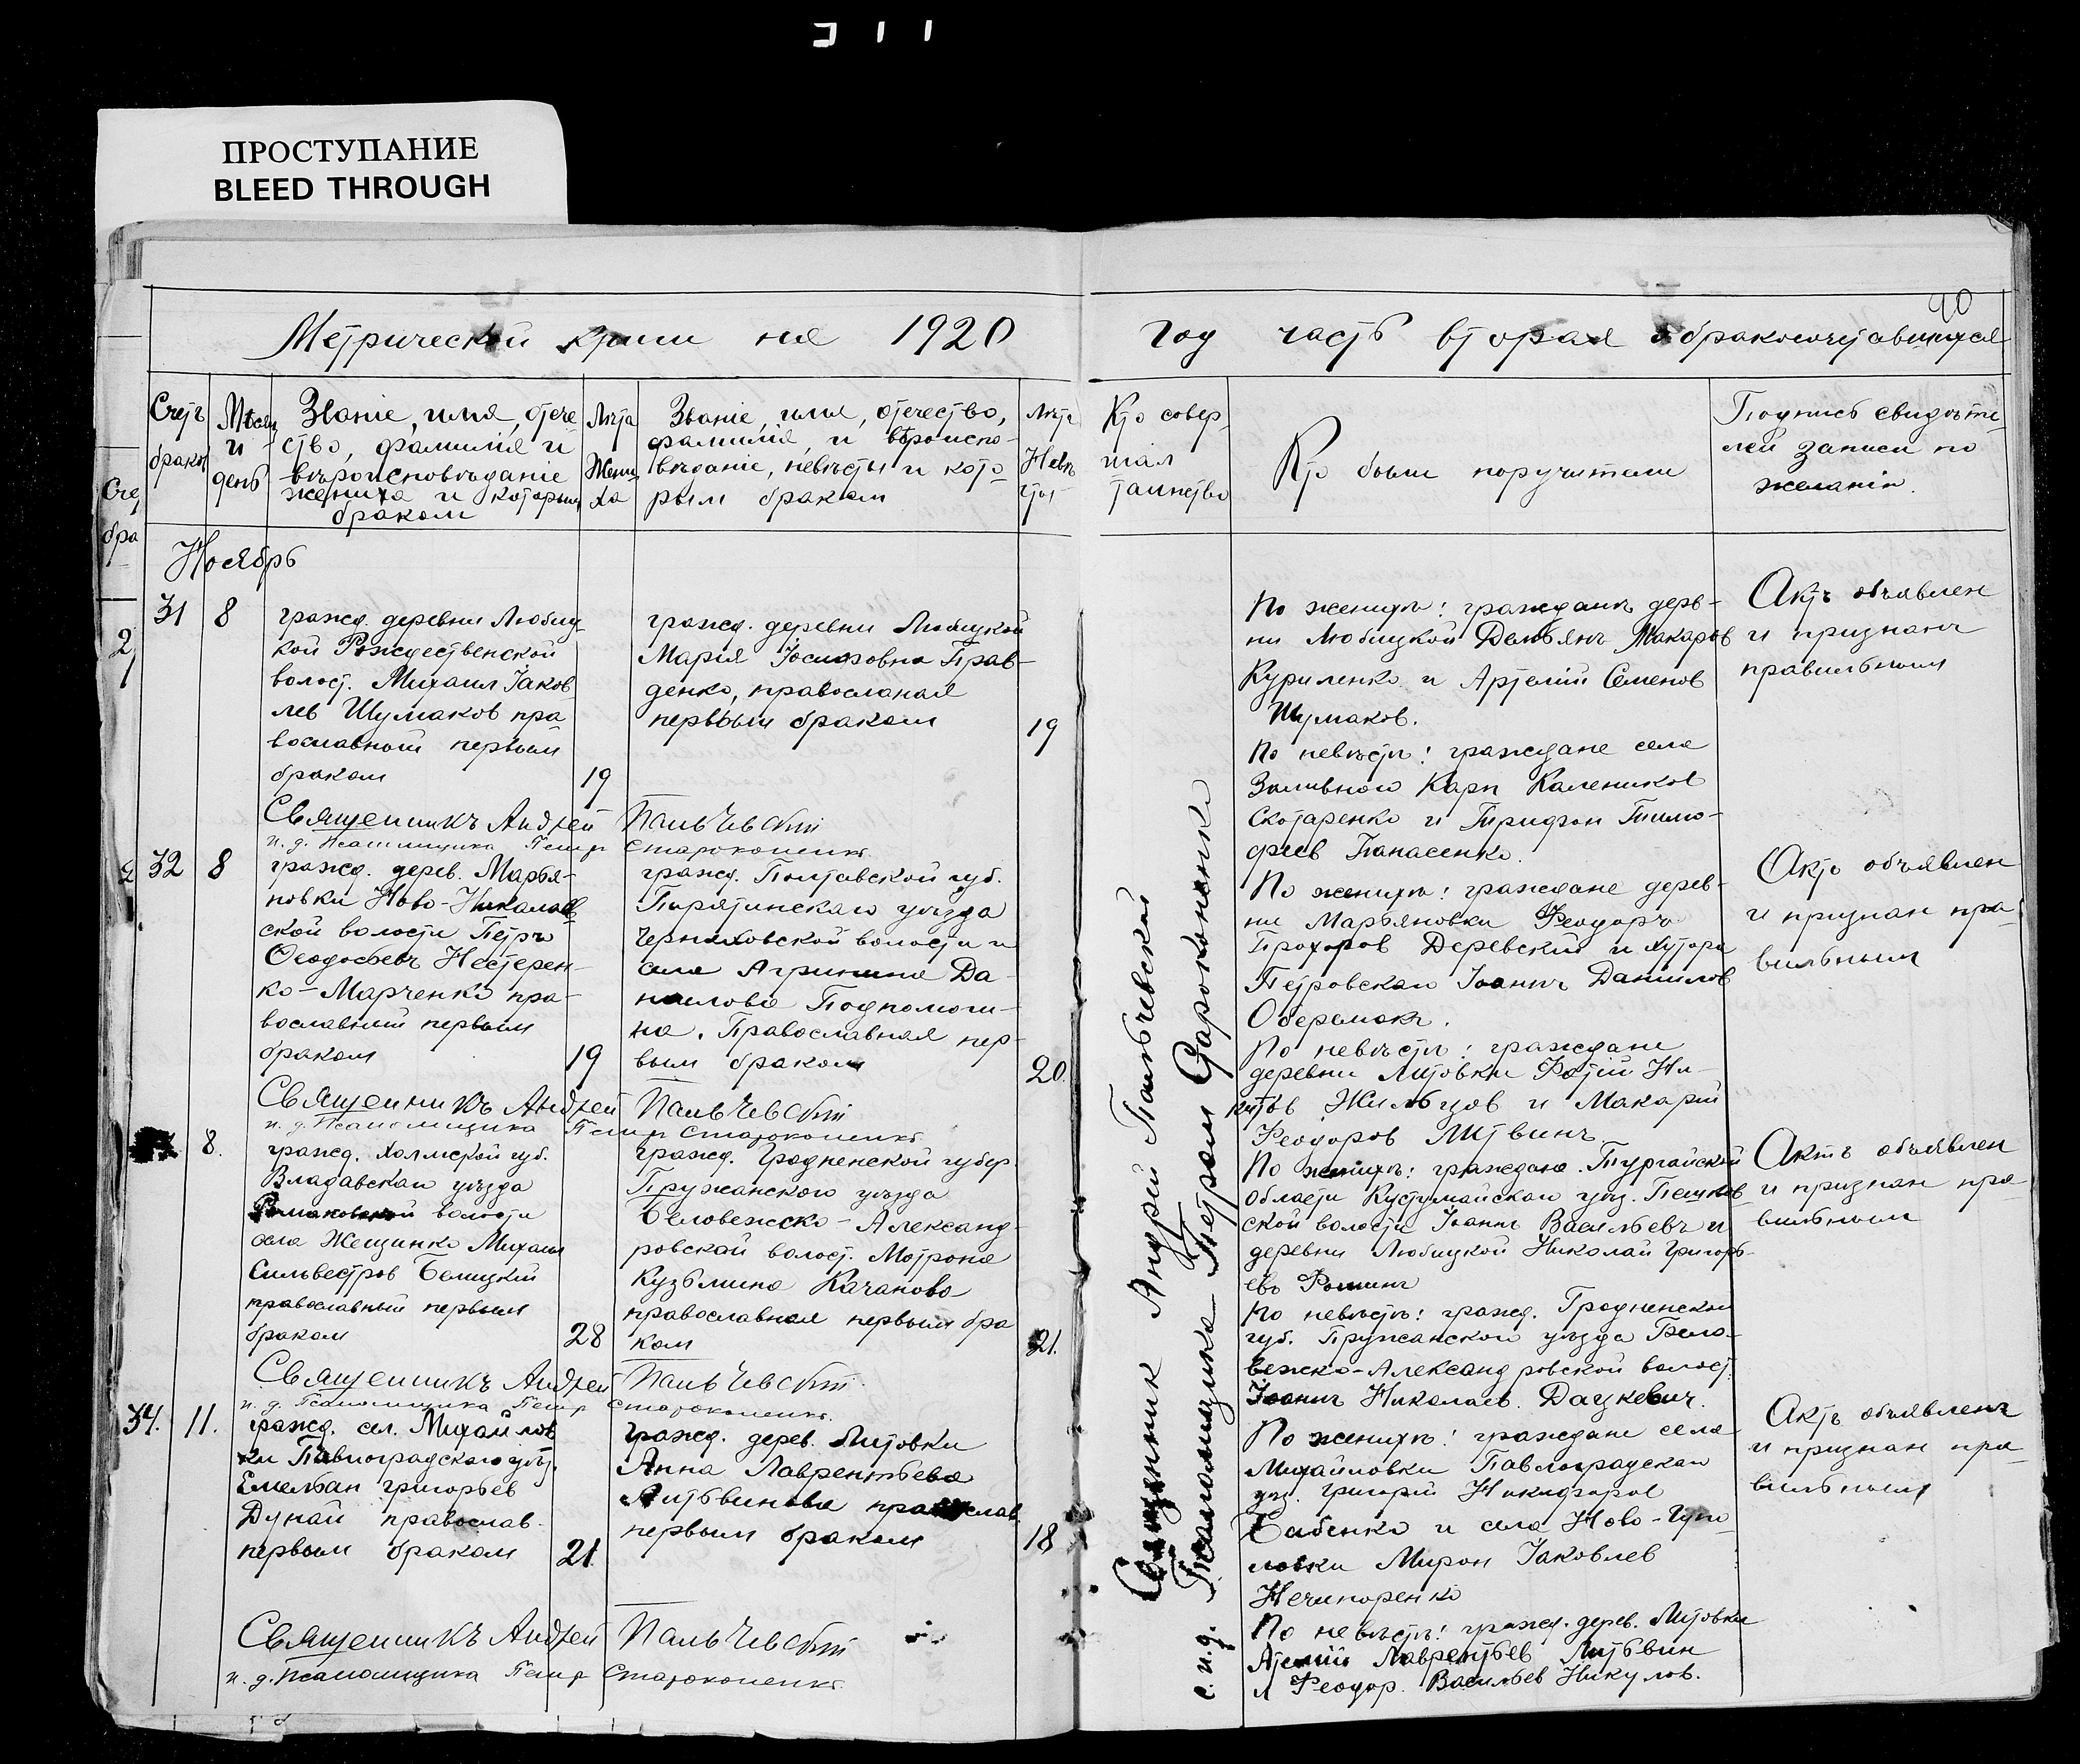 ПРОСТУПАНИЕ
BLEED THROUGH
90
Метрической книги на 1920
год часть вторая о бракосочетавшихся
Счетъ
браков
Мѣсяц
и
день
Званіе, имя, отече
ство, фамилія и
вѣроисповѣданіе
жениха и которым
браком
Лѣта
Жени
ха
Званіе, имя, отечество,
фамилія, и вѣроиспо-
вѣданіе, невѣсты и кото
рым браком
Лѣта
Невѣ
сты
Кто совер
шал
таинство
Кто были поручители
Подпись свидѣте
лей записи по
желанію.
Сче
бра
Ноябрь
2
31
8
гражд. деревни Любиц
кой Рождественской
волост. Михаил Іаков
лев Шумаков пра
вославный первым
браком
19
гражд. деревни Любицкой
Марія Іосифовна Прав-
денко, православная
первым браком
19
По женихѣ: гражданѣ дерев-
ни Любицкой Демьянъ Макаров
Куриленко и Артемій Семенов
Шумаков.
По невѣстѣ: граждане села
Заливного Карп Калеников
Скотаренко и Трифон Тимо-
феев Панасенко.
Актъ объявлен
и признанъ
правильным
Священникъ Андрей Пальчевскій
и. д. Псаломщика Петр Староконенко.
2
32
8
гражд. дерев. Марья-
новки Ново-Николаев
ской волости Петръ
Феодосьевъ Нестерен-
ко-Марченко пра-
вославный первым
браком
19
гражд. Полтавской губ.
Пирятинскаго уѣзда
Черняховской волости и
села Агрипина Да-
нилова Подпомоги-
на. Православная пер-
вым браком
20.
По женихѣ: граждане дерев-
ни Марьяновки Феодоръ
Прохоров Деревский и хутора
Петровскаго Іоаннъ Данилов
Оберемокъ.
По невѣстѣ: граждане
деревни Литовки Фотій Ни-
китов Жильцов и Макарій
Феодоров Литвинъ.
Актъ объявлен
и признан пра
вильным
Священникъ Андрей Пальчевскій
и. д. Псаломщика Петр Староконенко.
8.
гражд. Холмской губ.
Владавскаго уѣзда
волости
села Жещинко Михаил
Сильвестров Белицкій
православный первым
браком
28
гражд. Гродненской губер.
Пружанскаго уѣзда
Беловежско-Александ-
ровской волост. Мотрона
Кузьмина Качанова
православная первым бра
ком
21.
По женихѣ: граждане Тургайской
области Кустумайскаго уѣз. Пешков
ской волости Іоаннъ Васильевъ и
деревни Любицкой Николай Григорь-
евъ Фоминъ
По невѣстѣ: гражд. Гродненской
губ. Пружанского уѣзда Бело-
вежско-Александровской волост.
Іоаннъ Николаев. Дацкевич.
Актъ объявлен
и признан пра
вильным
Священникъ Андрей Пальчевскій
и. д. Псаломщика Петр Староконенко.
34.
11.
гражд. сел. Михайлов
ки Павлоградскаго уѣз.
Емельян Григорьев
Дунай православ.
первым браком
21.
гражд. дерев. Литовки
Анна Лаврентьева
Литвинова православ.
первым браком
18
По женихѣ: граждане села
Михайловки Павлоградскаго
уѣз. Григорій Никифоров
Бабенко и села Ново-Гупа-
ловки Мирон Іаковлев
Нечипоренко
По невѣстѣ: гражд. дерев. Литовки
Лаврентьев Литвин
и Феодор. Васильев Никулов.
Актъ объявленъ
и признан пра
вильным
Священникъ Андрей Пальчевскій
и. д. Псаломщика Петр Староконенко.
Священник Андрей Пальчевской
с. п. д. Псаломщика Петром Староконенко